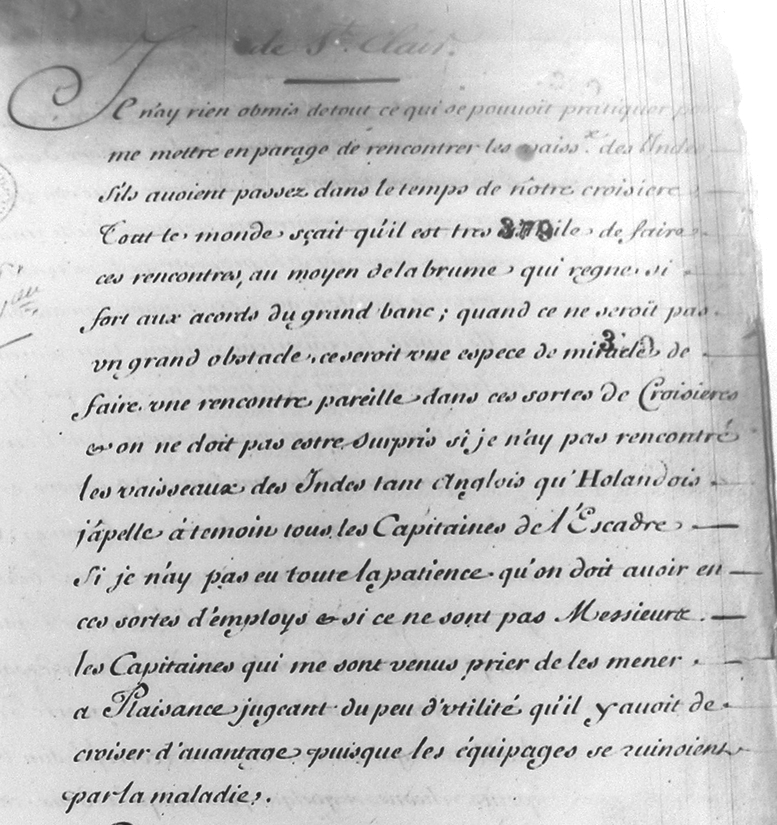 de St. Clair.
Je n'ay rien obmis de tout ce qui se pouvoit pratiquer pour
me mettre en parage de rencontrer les vaissx. des Indes
s'ils auoient passez dans le temps de nôtre croisiere
Tout le monde sçait qu'il est tres de faire
379
ces rencontres, au moyen de la brume qui regne si
fort aux acords du grand banc; quand ce ne seroit pas
vn grand obstacle, ce seroit vne espece de miracle de
3
faire vne rencontre pareille dans ces sortes de Croisieres
& on ne doit pas estre surpris si je n'ay pas rencontré
les vaisseaux des Indes tant Anglois qu'Holandois
j'apelle à temoin tous les Capitaines de l'Escadre
Si je n'ay pas eu toute la patience qu'on doit auoir en
ces sortes d'employs & si ce ne sont pas Messieurx
les Capitaines qui me sont venus prier de les mener
a Plaisance jugeant du peu d'vtilité qu'il y auoit de
croiser d'auantage puisque les équipages se ruinoient
par la maladie.